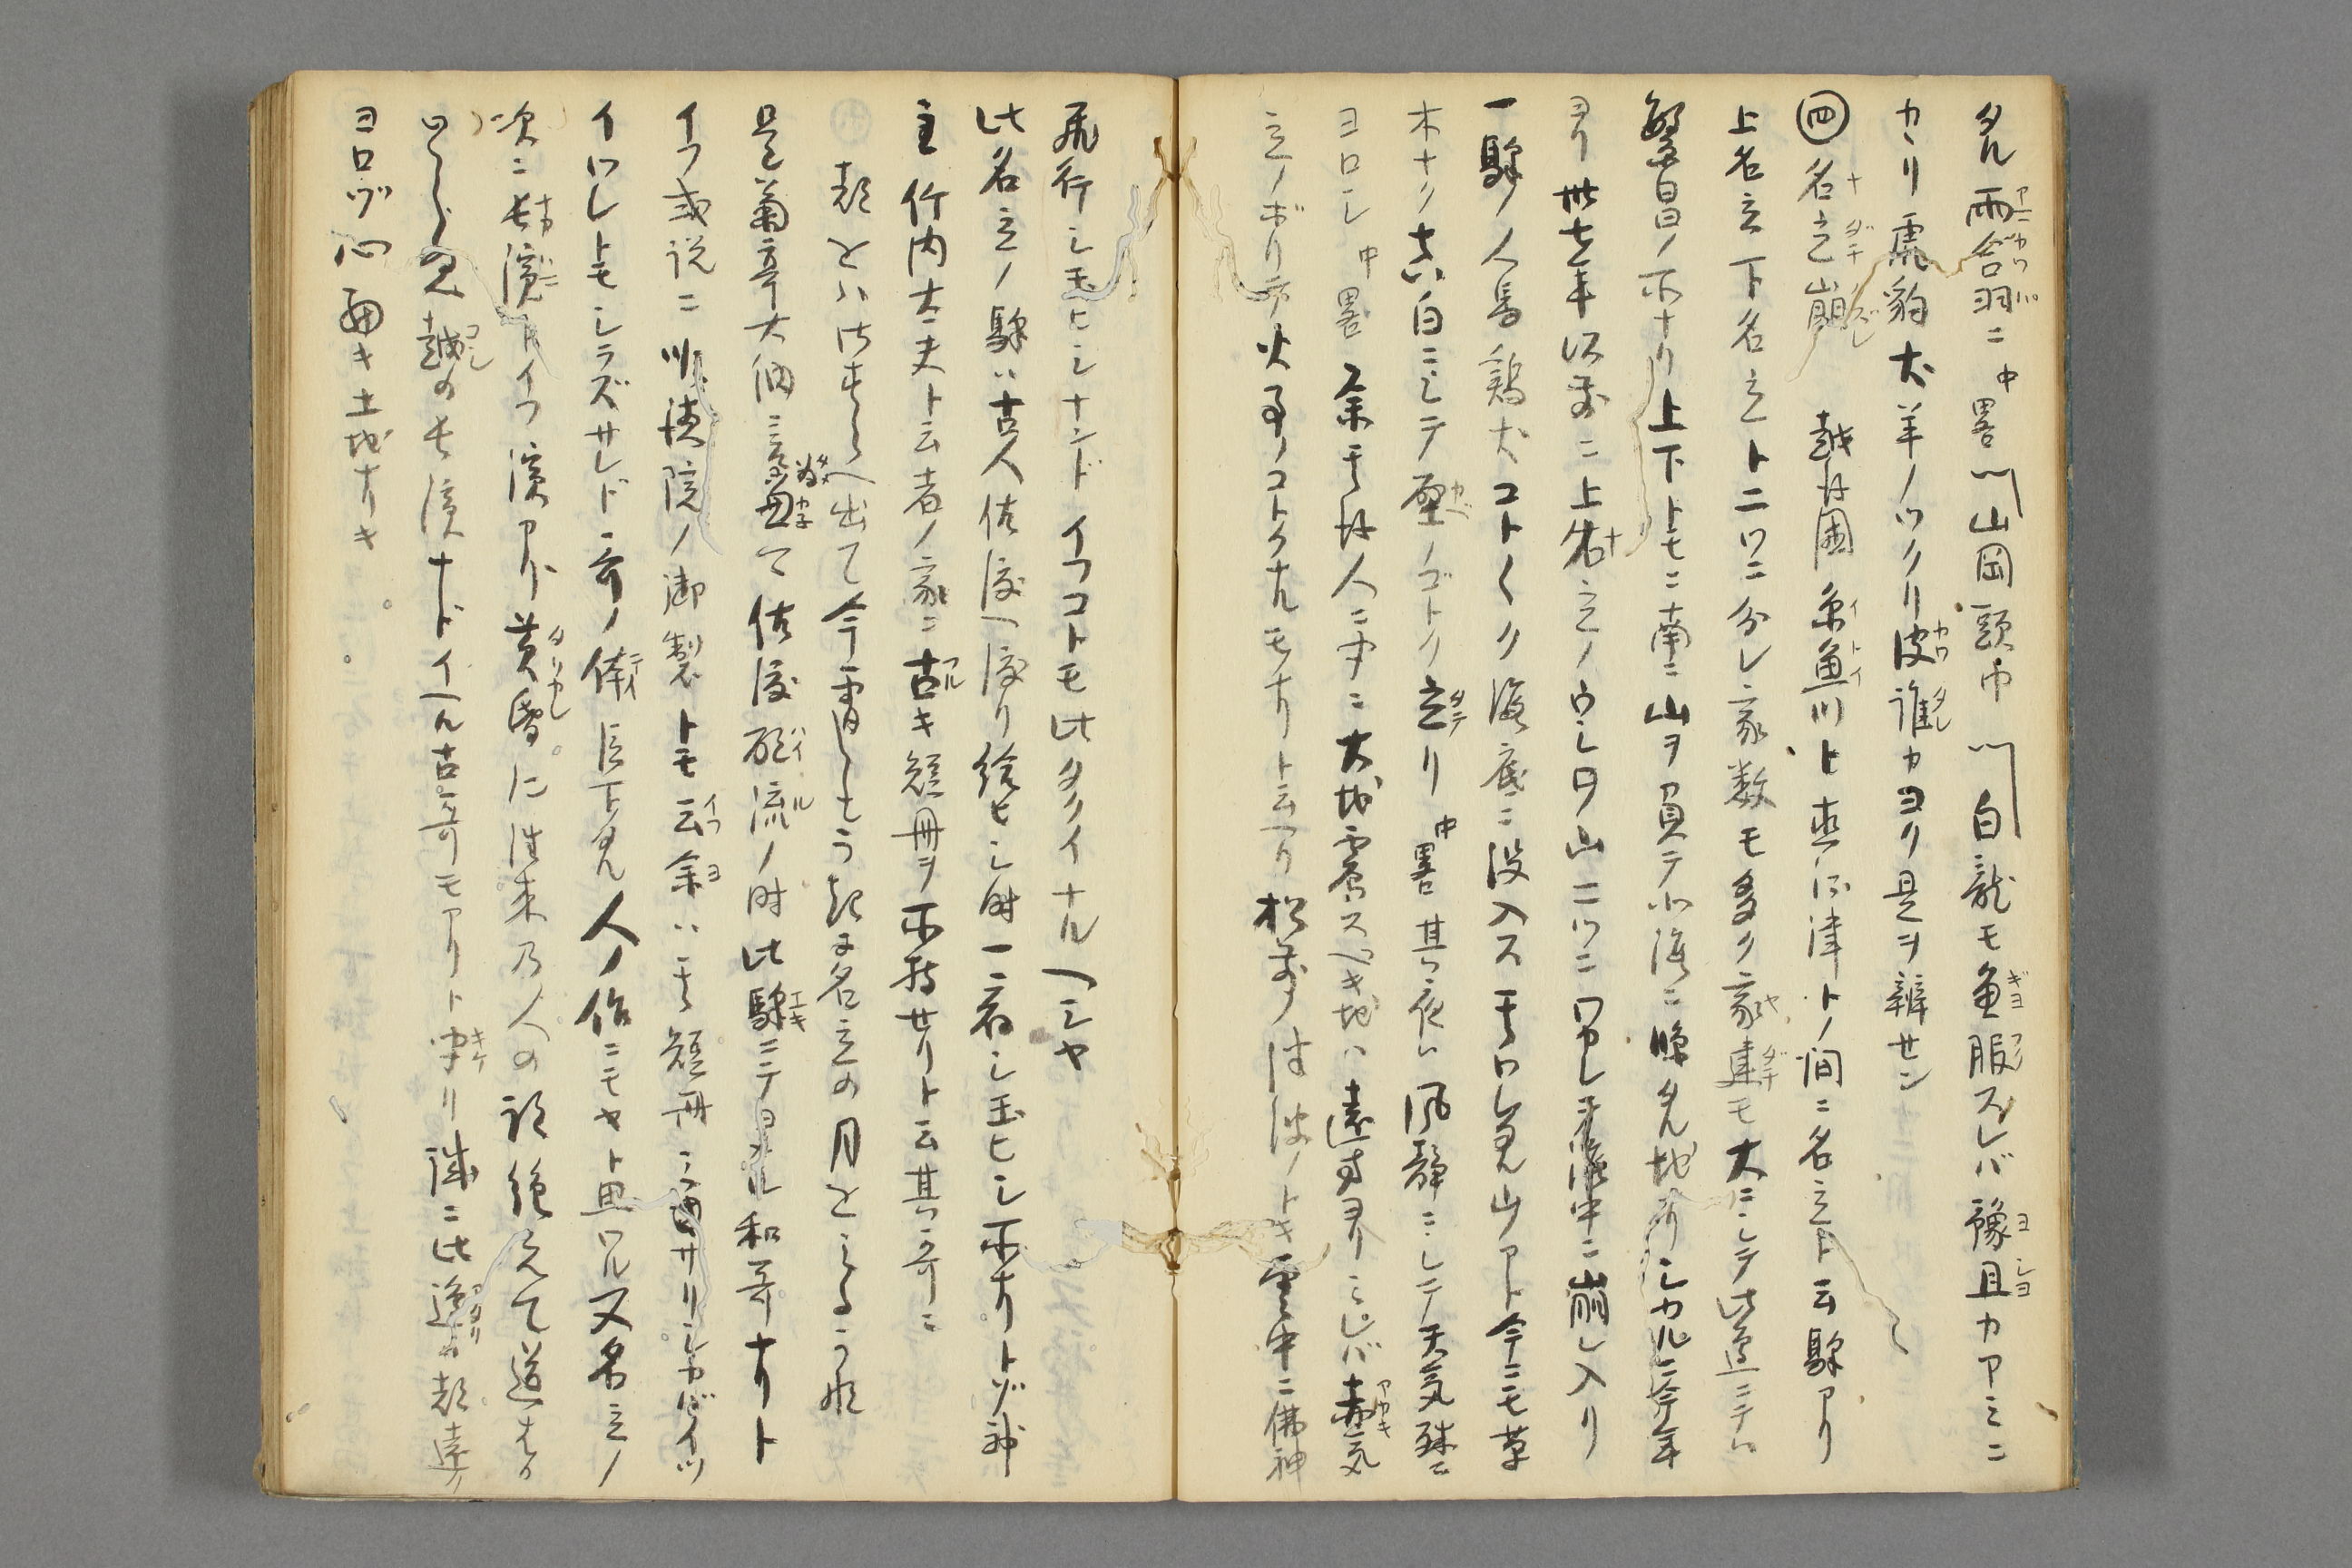 タル雨合羽ニ中畧山岡頭巾白龍モ魚服スレバ豫且カアミニ
カヽリ虎豹犬羊ノツクリ皮誰カヨク是ヲ辨セン
四 名立崩 越後国糸魚川ト直江津トノ間ニ名立ト云駅アリ
上名立下名立ト二ツニ分レ家数モ多ク家建モ大ニシテ此辺ニテハ
繁昌ノ所ナリ上下トモニ南ニ山ヲ負テ北海ニ臨タル地ナリシカルニ今年
ヨリ卅七年以前ニ上名立ノウシロノ山二ツニワカレテ海中ニ崩レ入リ
一駅ノ人馬鶏犬コト〱ク海底ニ没入ス其ワレタル山アト今ニモ草
木ナク真白ニシテ壁ノゴトク立リ中畧其夜ハ風静ニシテ天気殊ニ
ヨロシ中畧余其後人ニ聞ニ大地震スヘキ地ハ遠方ヨリミレバ赤気
立ノボリテ火事ノコトクナルモノナリト云ヘリ松前ノ津波ノトキ雲中ニ佛神
飛行シ玉ヒシナンドイフコトモ此タクイナルヘシヤ
此名立ノ駅ハ古人佐渡ヘ渡リ給ヒシ時一宿シ玉ヒシ所ナリトゾ神
主竹内大夫ト云者ノ家ニ古キ短冊ヲ所持セリト云其哥ニ
都をハ出て今宵しも名立の月を
是菊亭大納言為兼て佐渡配流ノ時此駅ニテ和哥ナリト
イフ或説ニ順徳院ノ御製トモ云余ハ其短冊ニ サリシカバイツ
イツレトモシラズサレド哥ノ体臣下タル人ノ作ニモヤト思ワル又名立ノ
次ニ長濱トイフ濱アリ黄昏に往来乃人の跡絶えて道
越の長濱ナドイヘル古哥モアリト聞リ誠ニ此邊ハ都遠ク
ヨロヅ心細キ土地ナリキ